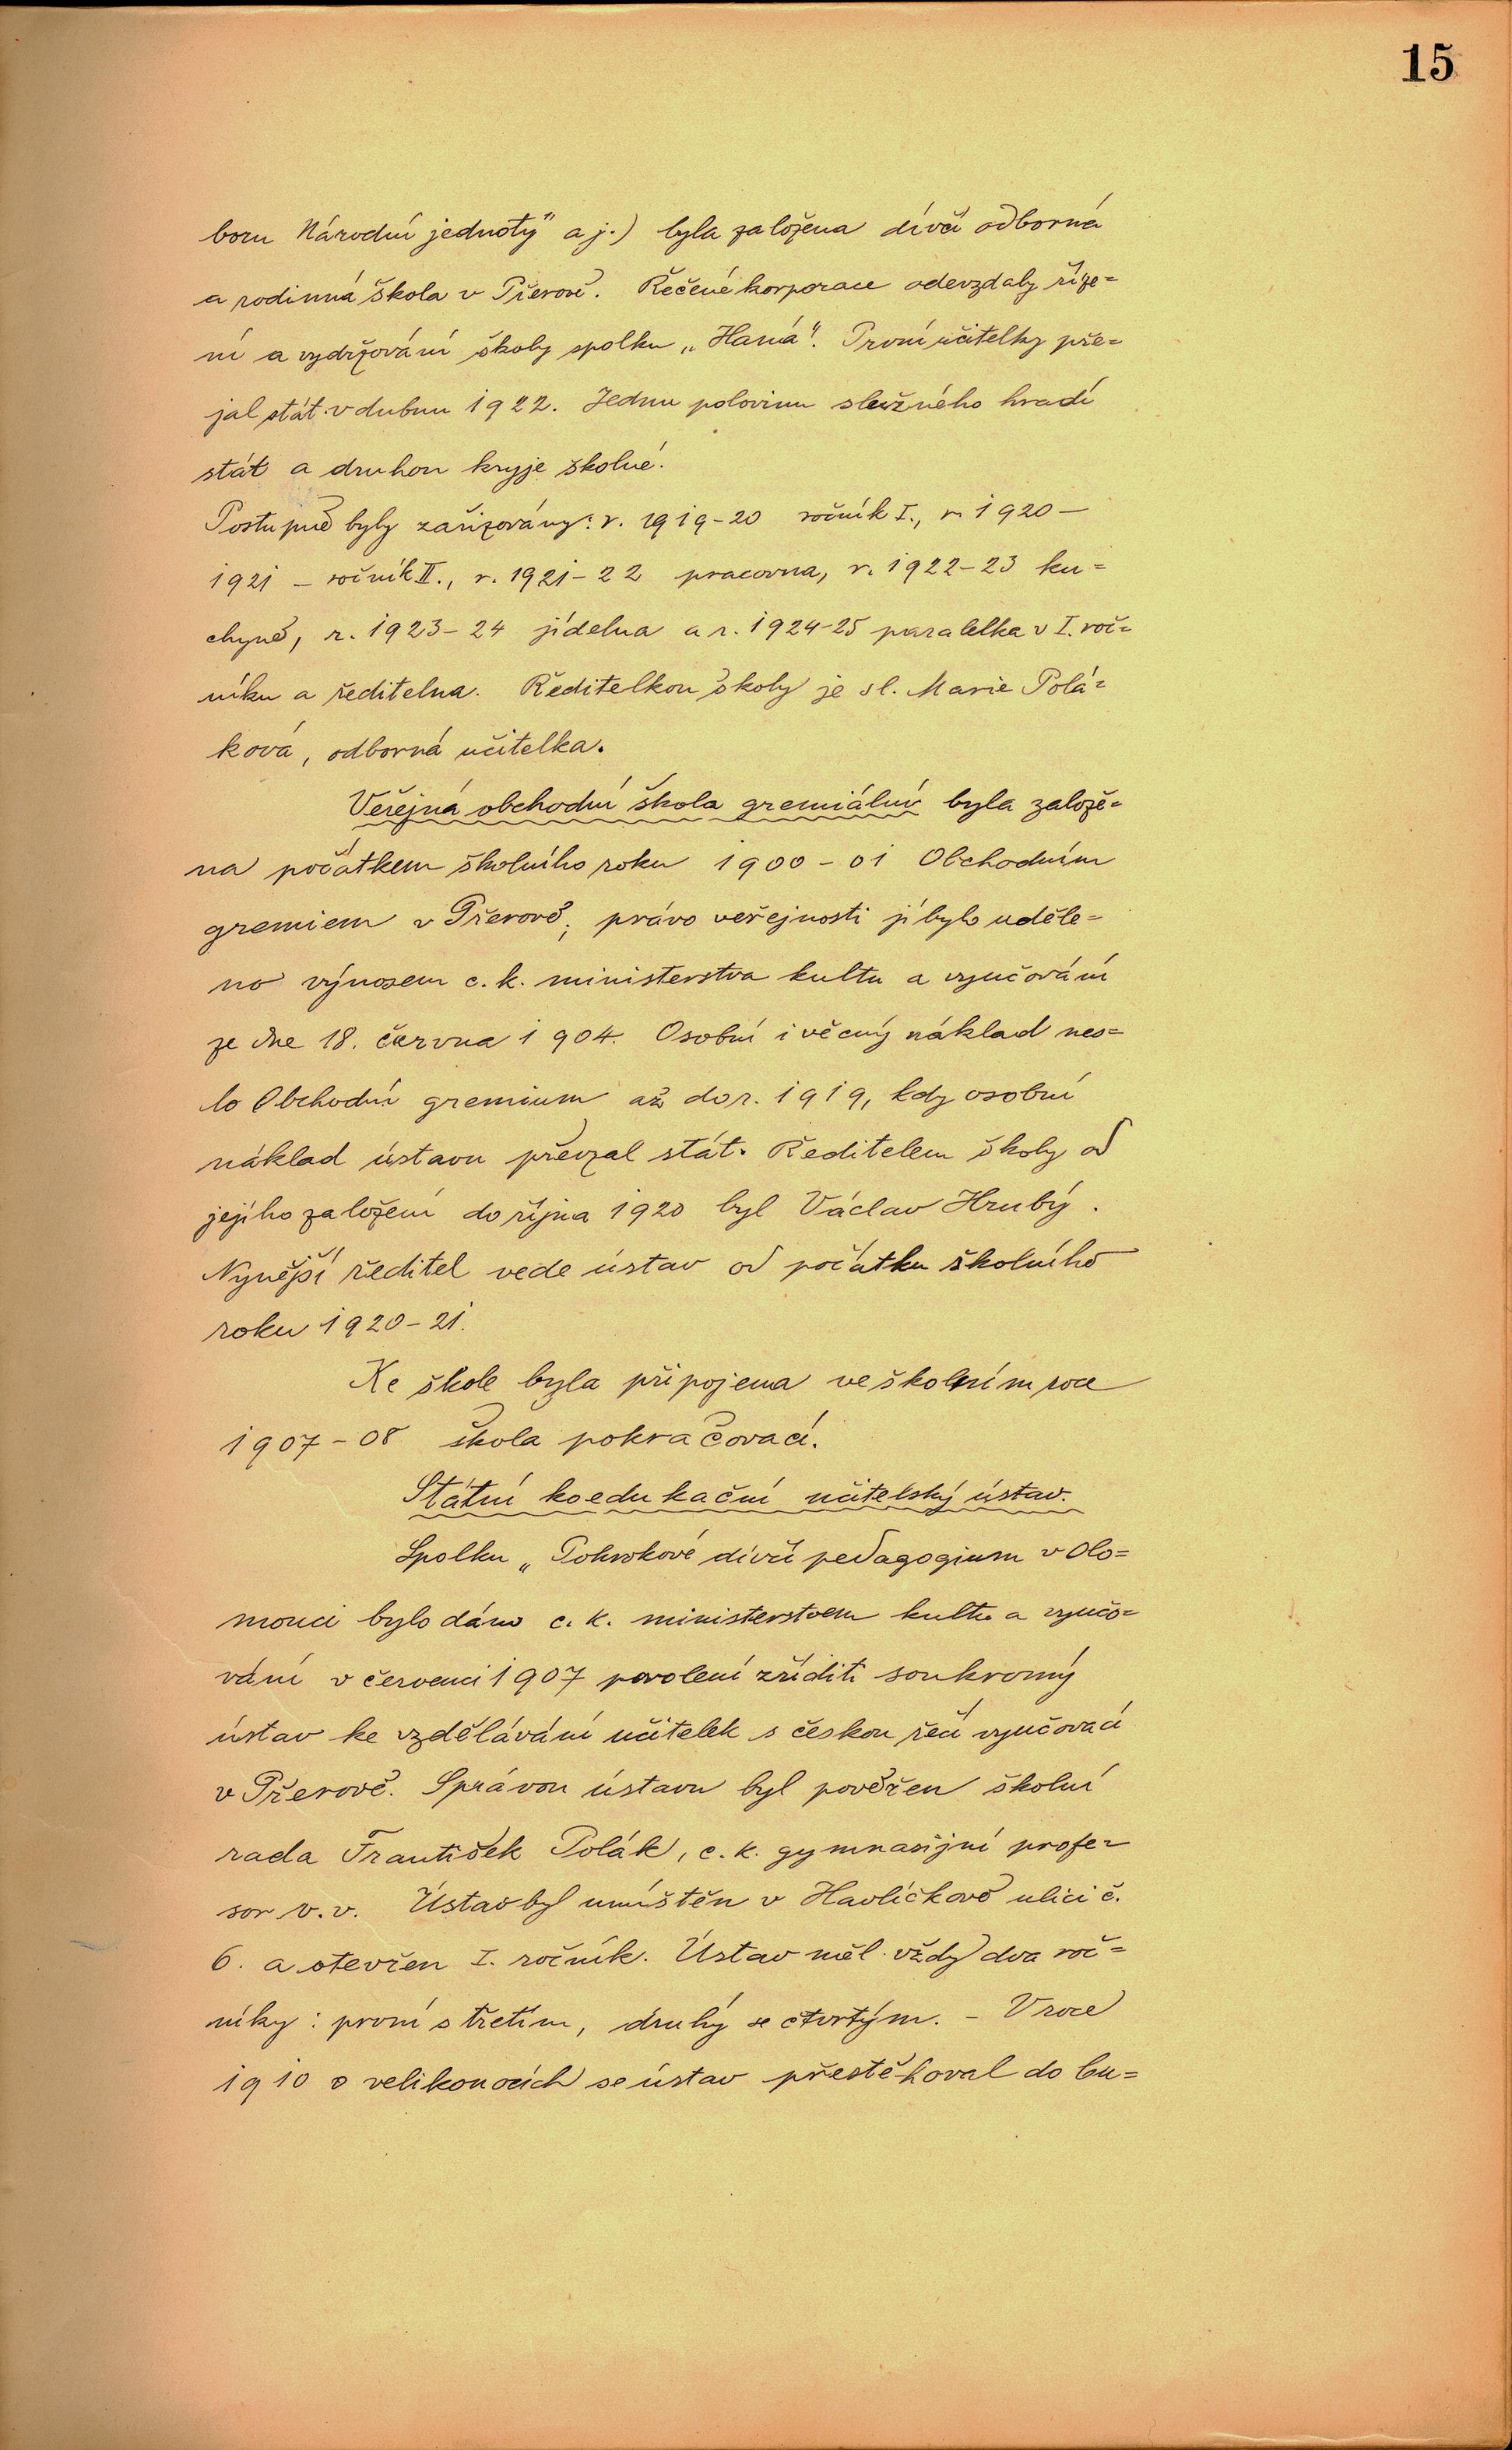 15
boru Národní jednoty" a j.) byla založena dívčí odborná
a rodinná škola v Přerově. Řečené korporace odevzdaly říze=
ní a vydržování školy spolku „Haná". První učitelky pře=
jal stát v dubnu 1922. Jednu polovinu služného hradí
stát a druhou kryje školné.
Postupně byly zařizovány: r. 1919-20 ročník I., r. 1920-
1921 - ročník II., r. 1921-22 pracovna, r. 1922-23 ku=
chyně, r. 1923-24 jídelna a r. 1924-25 paralelka v I. roč=
níku a ředitelna. Ředitelkou školy je sl. Marie Polá=
ková, odborná učitelka.
Veřejná obchodní škola gremiální byla založe=
na počátkem školního roku 1900-01 Obchodním
gremiem v Přerově; právo veřejnosti jí bylo uděle=
no výnosem c. k. ministerstva kultu a vyučování
ze dne 18. června 1904. Osobní i věcný náklad nes=
lo Obchodní gremium až do r. 1919, kdy osobní
náklad ústavu převzal stát. Ředitelem školy od
jejího založení do října 1920 byl Václav Hrubý.
Nynější ředitel vede ústav od počátku školního
roku 1920-21.
Ke škole byla připojena ve školním roce
1907-08 škola pokračovací.
Státní koedukační učitelský ústav.
Spolku „Pokrokové dívčí pedagogium v Olo=
mouci bylo dáno c. k. ministerstvem kultu a vyučo=
vání v červenci 1907 povolení zříditi soukromý
ústav ke vzdělávání učitelek s českou řečí vyučovací
v Přerově. Správou ústavu byl pověřen školní
rada František Polák, c. k. gymnasijní profe=
sor v. v. Ústav byl umístěn v Havlíčkově ulici č.
6. a otevřen I. ročník. Ústav měl vždy dva roč=
níky: první s třetím, druhý se čtvrtým. - V roce
1910 o velikonocích se ústav přestěhoval do bu=